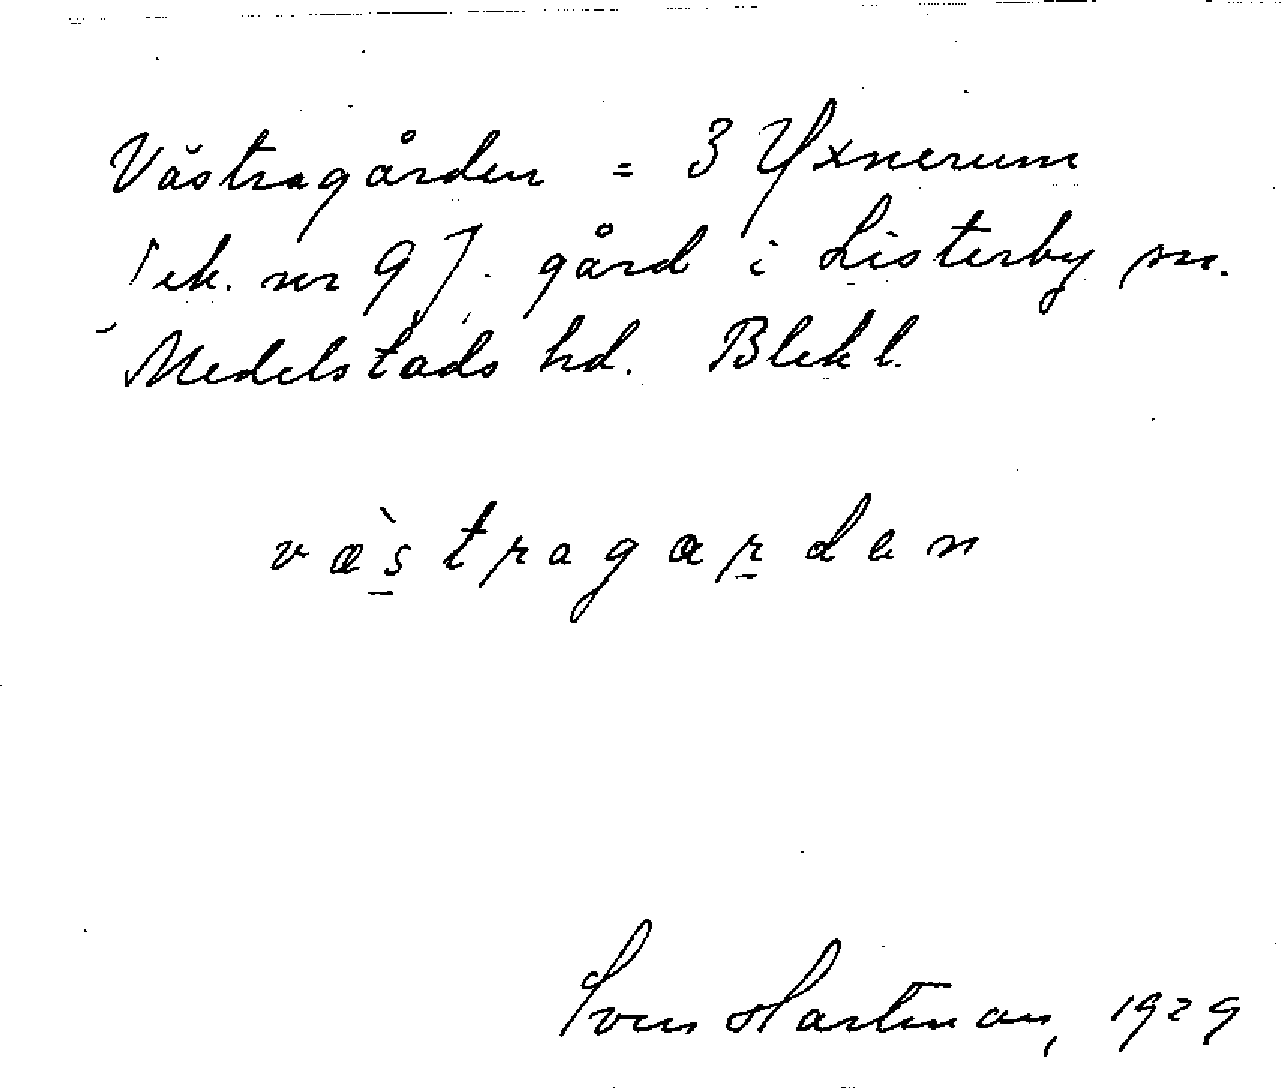 Västragården = 3 Yxnerum
1 ek. nr 97. gård i Listerby sn.
Medelstads hd. Blekl.
væ̀stragardan
Sven Hartman, 1929